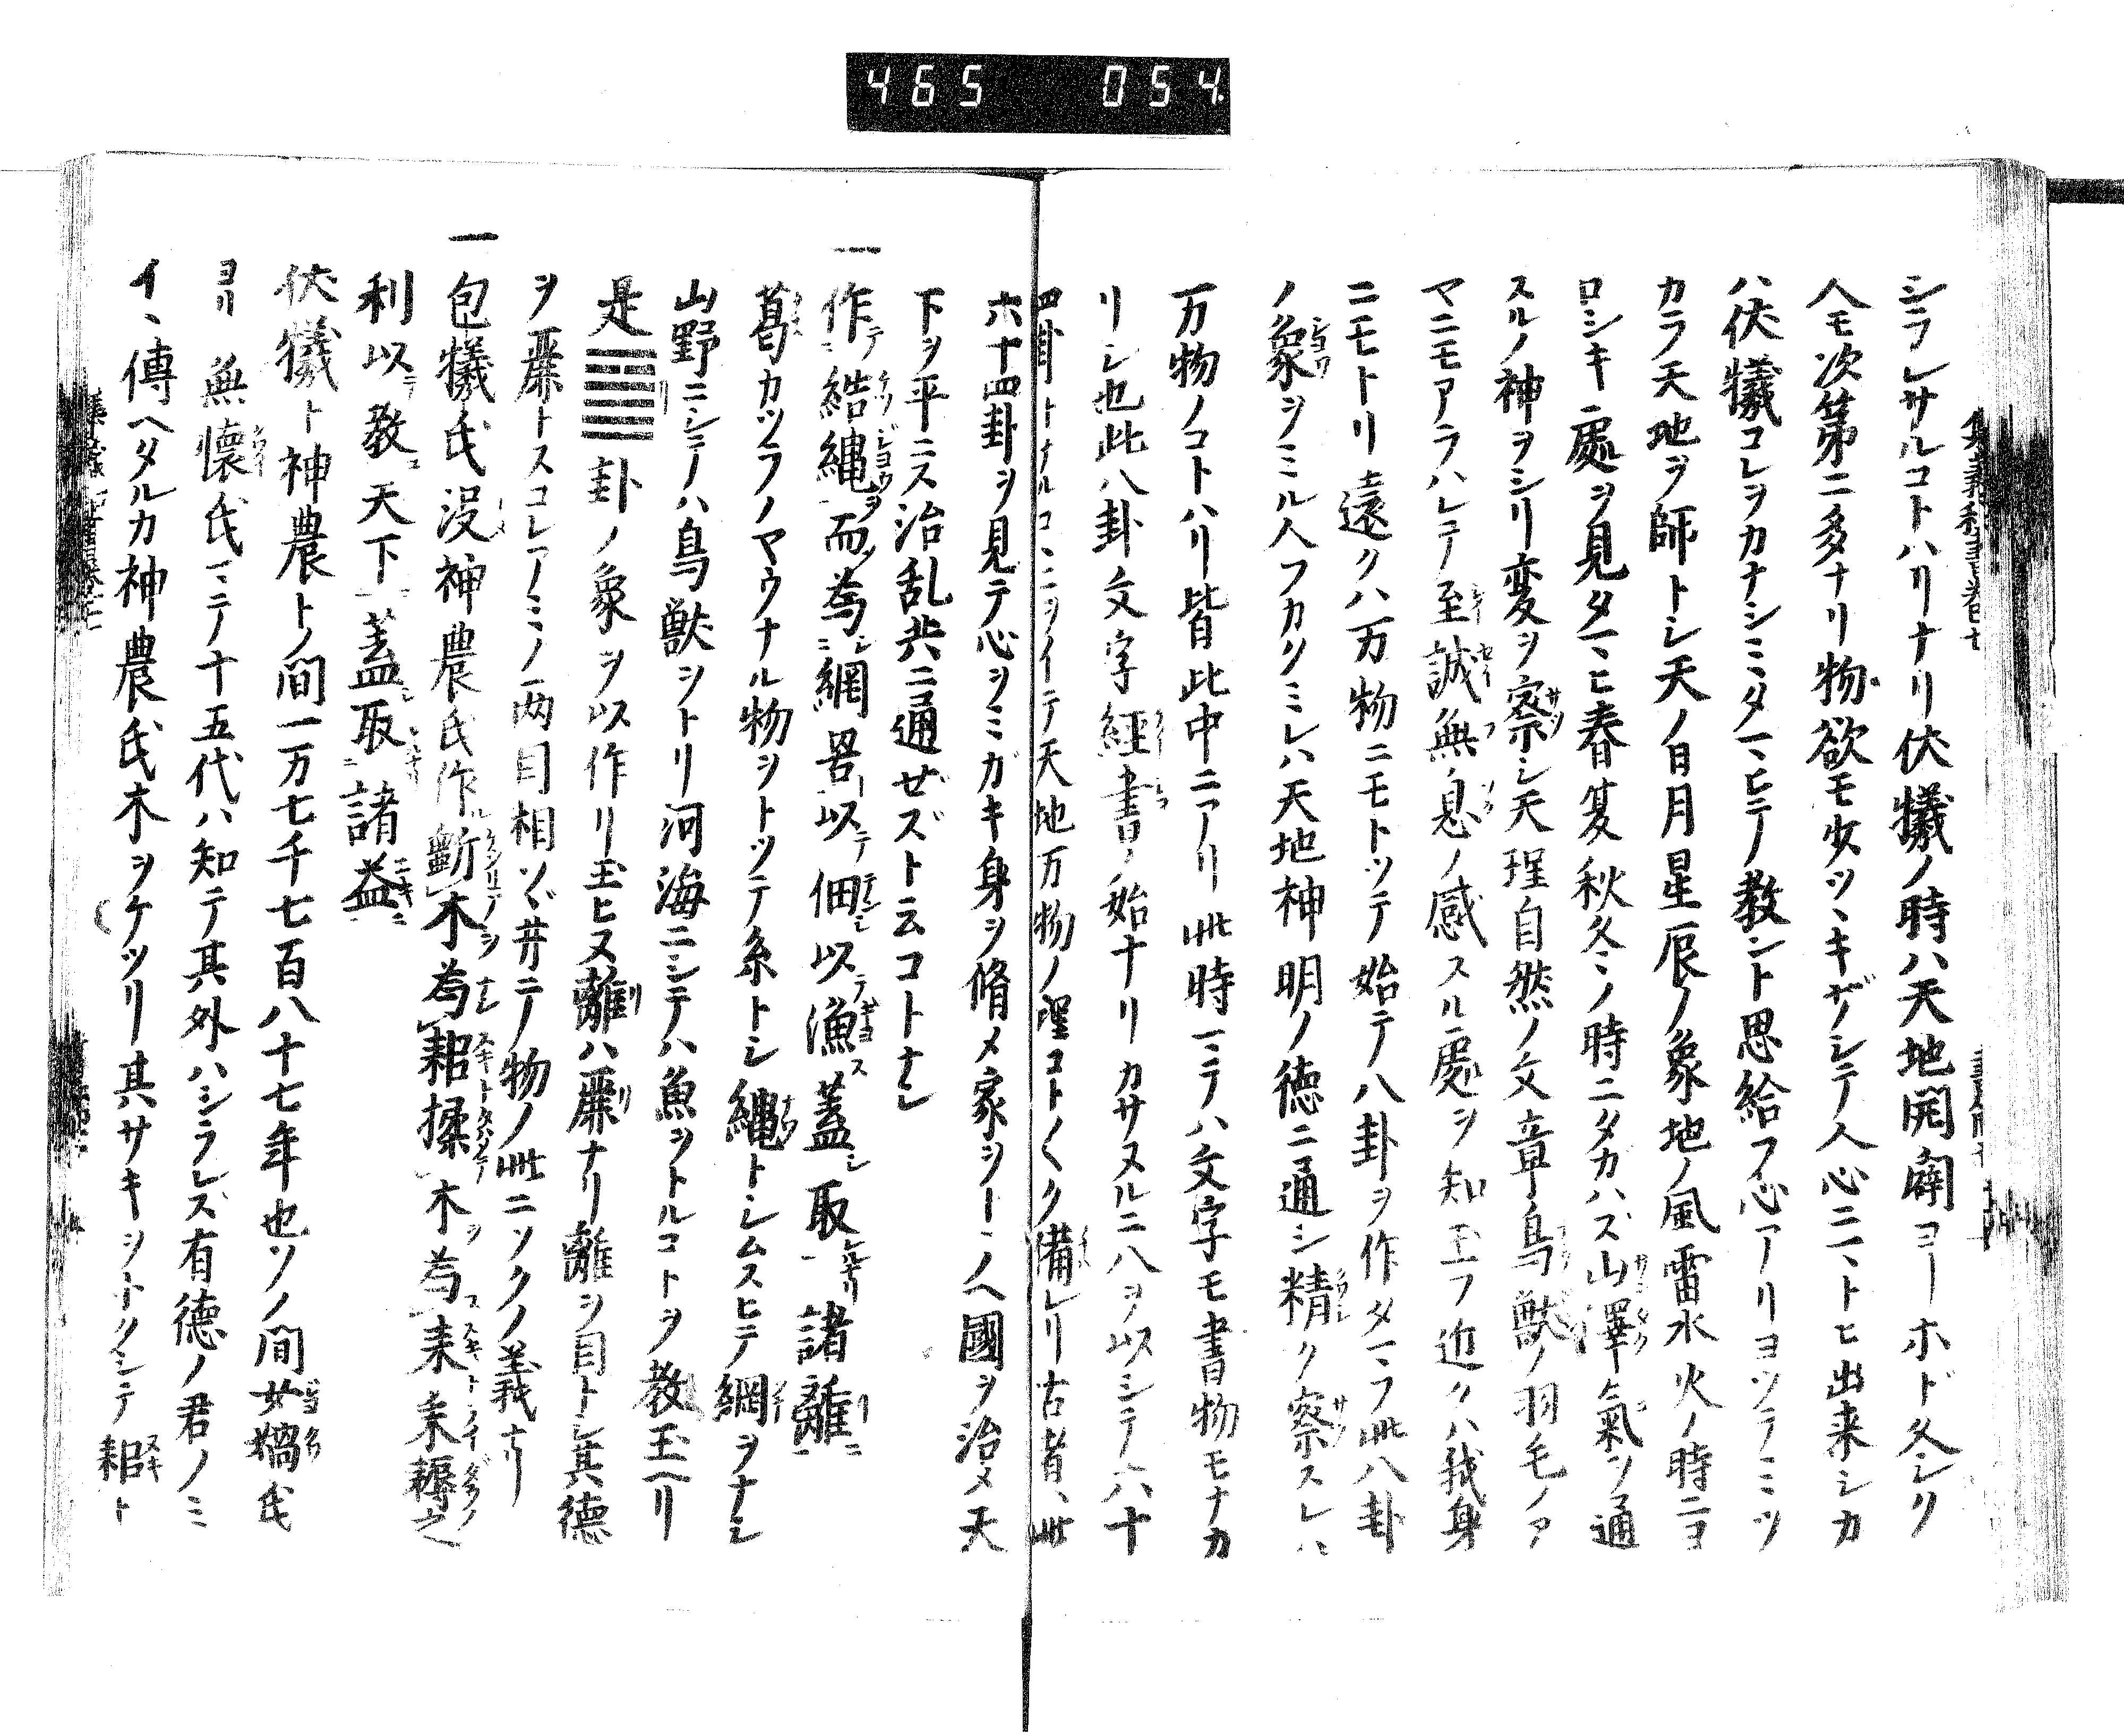 465 054
シラレサルコトハリナリ伏犠ノ時ハ天地開闢ヨーホド久シク
人モ次第ニ多ナリ物欲モ出ツヽキザシテ人心ニヽトヒ出来シカ
ハ伏犠コレヲカナシミタマヒテ教ント思給フ心アリヨツテミツ
カラ天地ヲ師トシ天ノ日月星辰ノ象地ノ風雷水火ノ時ニヨ
ロシキ處ヲ見タマヒ春夏秋冬ノ時ニタカハズ山澤氣ヲ通
スルノ神ヲシリ変ヲ察シ天理自然ノ文章鳥獣ノ羽毛ノア
マニモアラハレテ至誠無息ノ感スル處ヲ知玉フ近クハ我身
ニモトリ遠クハ万物ニモトツテ始テ八卦ヲ作タマフ此八卦
ノ象ヲミル人フカクミレハ天地神明ノ徳ニ通シ精ク察スレハ
万物ノコトハリ皆此中ニアリ此時マテハ文字モ書物モナカ
リシ也此八卦文字經書ノ始ナリカサヌルニ八ヲ以シテ六十
四卦トナルコヽニヲイテ天地万物ノ理コト〱ク備レリ古者ハ此
六十四卦ヲ見テ心ヲミガキ身ヲ脩メ家ヲトヽノヘ國ヲ治メ天
下ヲ平ニス治乱共ニ通ゼズト云コトナシ
一 作テ結縄而為網罟以テ佃以テ漁蓋取諸離
葛カツラノマウナル物ヲトツテ糸トシ縄トシムスヒテ網ヲナシ
山野ニシテハ鳥獣ヲトリ河海ニシテハ魚ヲトルコトヲ教玉ヘリ
是卦ノ象ヲ以作リ玉ヒヌ離ハ麗ナリ離ヲ目トシ其徳
ヲ麗トスコレアミノ両目相ツゞ井テ物ノ此ニツクノ義ナリ
一 包犠氏没神農氏作斵木為耜揉木為耒耒耨之
利以テ教天下蓋取諸益
伏犠ト神農トノ間一万七千七百八十七年也ソノ間女媧氏
ヨリ無懐氏マテ十五代ハ知テ其外ハシラレズ有徳ノ君ノミ
イヽ傳ヘタルカ神農氏木ヲケツリ其サキヲトクシテ耜ト